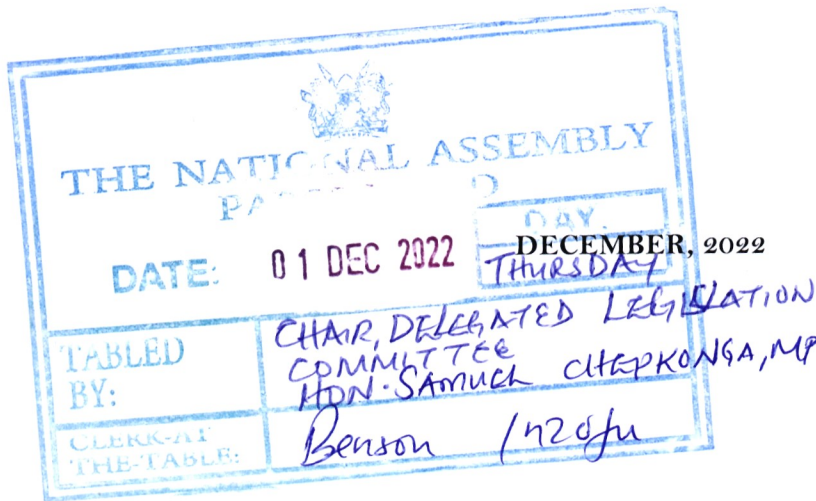 THE NATIONAL ASSEMBLY
DAY.
DATE: 01 DEC 2022 THURSDAY
DECEMBER, 2022
TABLED BY:
CHAIR, DELEGATED LEGISLATION
COMMITTEE
HON. SAMUEL CHEPKONGA, MP
CLERK-AT THE-TABLE:
Benson